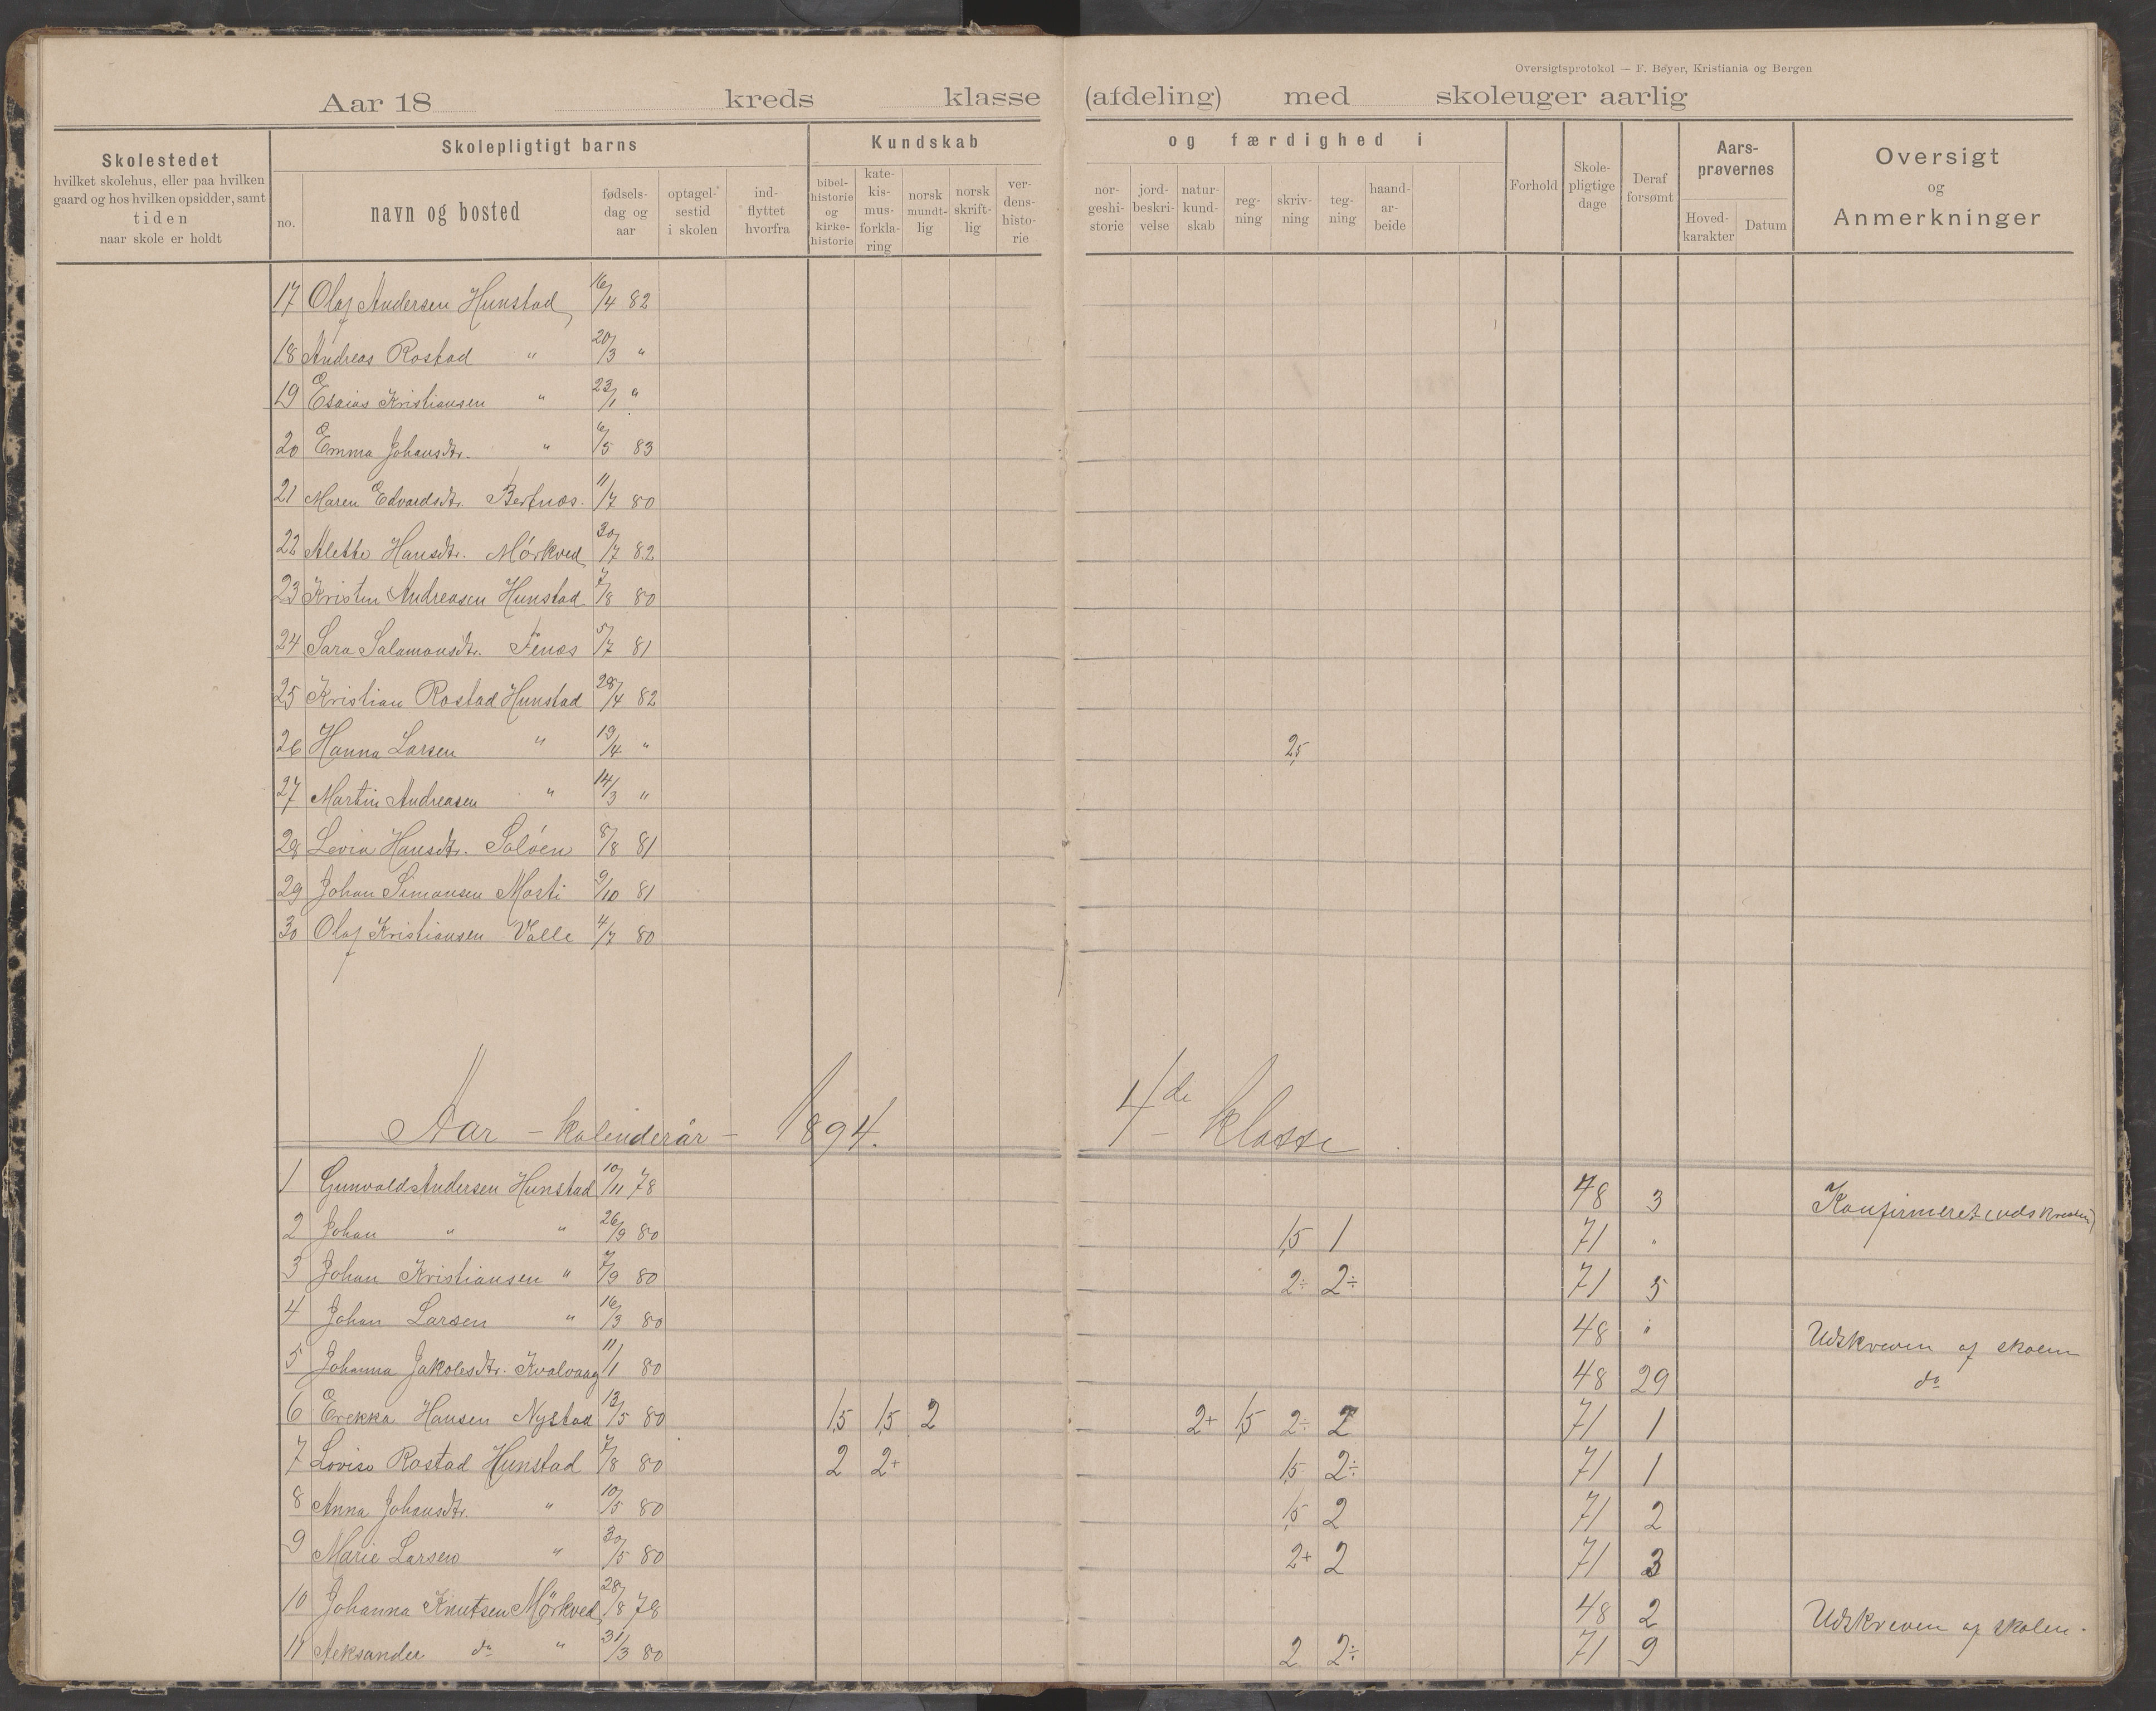 Oversigtsprotokol — F. Beyer, Kristiania og Bergen
Aar 18 kreds klasse (afdeling) med skoleuger aarlig
Skolestedet
hvilket skolehus, eller paa hvilken
gaard og hos hvilken opsidder, samt
tiden
naar skole er holdt
Skolepligtigt barns
no.
navn og bosted
fødsels-
dag og
aar
optagel-
sestid
i skolen
ind-
flyttet
hvorfra
Kundskab
bibel-
historie
og
kirke-
historie
kate-
kis-
mus-
forkla-
ring
norsk
mundt-
lig
norsk
skrift-
lig
ver-
dens-
histo-
rie
og færdighed i
nor-
geshi-
storie
jord-
beskri-
velse
natur-
kund-
skab
reg-
ning
skriv-
ning
teg-
ning
haand-
ar-
beide
Forhold
Skole-
pligtige
dage
Deraf
forsømt
Aars-
prøvernes
Hoved-
karakter
Datum
Oversigt
og
Anmerkninger
17 Olaf Andersen Hunstad 16/4 82
18 Andreas Rostad " 20/3 "
19 Esaias Kristiansen " 23/1 "
20 Emma Johansdtr. " 6/5 83
21 Maren Edvardsdtr. Bertnæs. 11/7 80
22 Alette Hansdtr. Mórkved 30/7 82
23 Kristen Andreasen Hunstad 7/8 80
24 Sara Salamonsdtr. Fenæs 5/7 81
25 Kristian Rostad Hunstad 28/4 82
26 Hanna Larsen " 19/4 " 2,5
27 Martin Andreasen " 14/3 "
28 Levia Hansdtr. Solóen 8/8 81
29 Johan Simonsen Mosti 9/10 81
30 Olaf Kristiansen Valle 4/7 80
Aar - kalenderår - 1894. 4de klasse
1 Gunvald Andersen Hunstad 10/11 78 48 3 Konfirmeret
2 Johan " " 26/9 80 1,5 1 71 "
3 Johan Kristiansen " 7/9 80 2÷ 2÷ 71 5
4 Johan Larsen " 16/3 80 48 " Udskreven af skolen
5 Johanna Jakobsdtr. Kvalvaag 11/1 80 48 29 do
6 Erekka Hansen Nystad 13/5 80 1,5 1,5 2 2+ 1,5 2÷ 2 71 1
7 Lovise Rostad Hunstad 7/8 80 2 2+ 1,5 2÷ 71 1
8 Anna Johansdtr. " 10/5 80 1,5 2 71 2
9 Marie Larsen " 30/5 80 2+ 2 71 3
10 Johanna Knutsen Mörkved 28/8 78 48 2 Udskreven af skolen.
11 Aeksander do " 31/3 80 2 2÷ 71 9